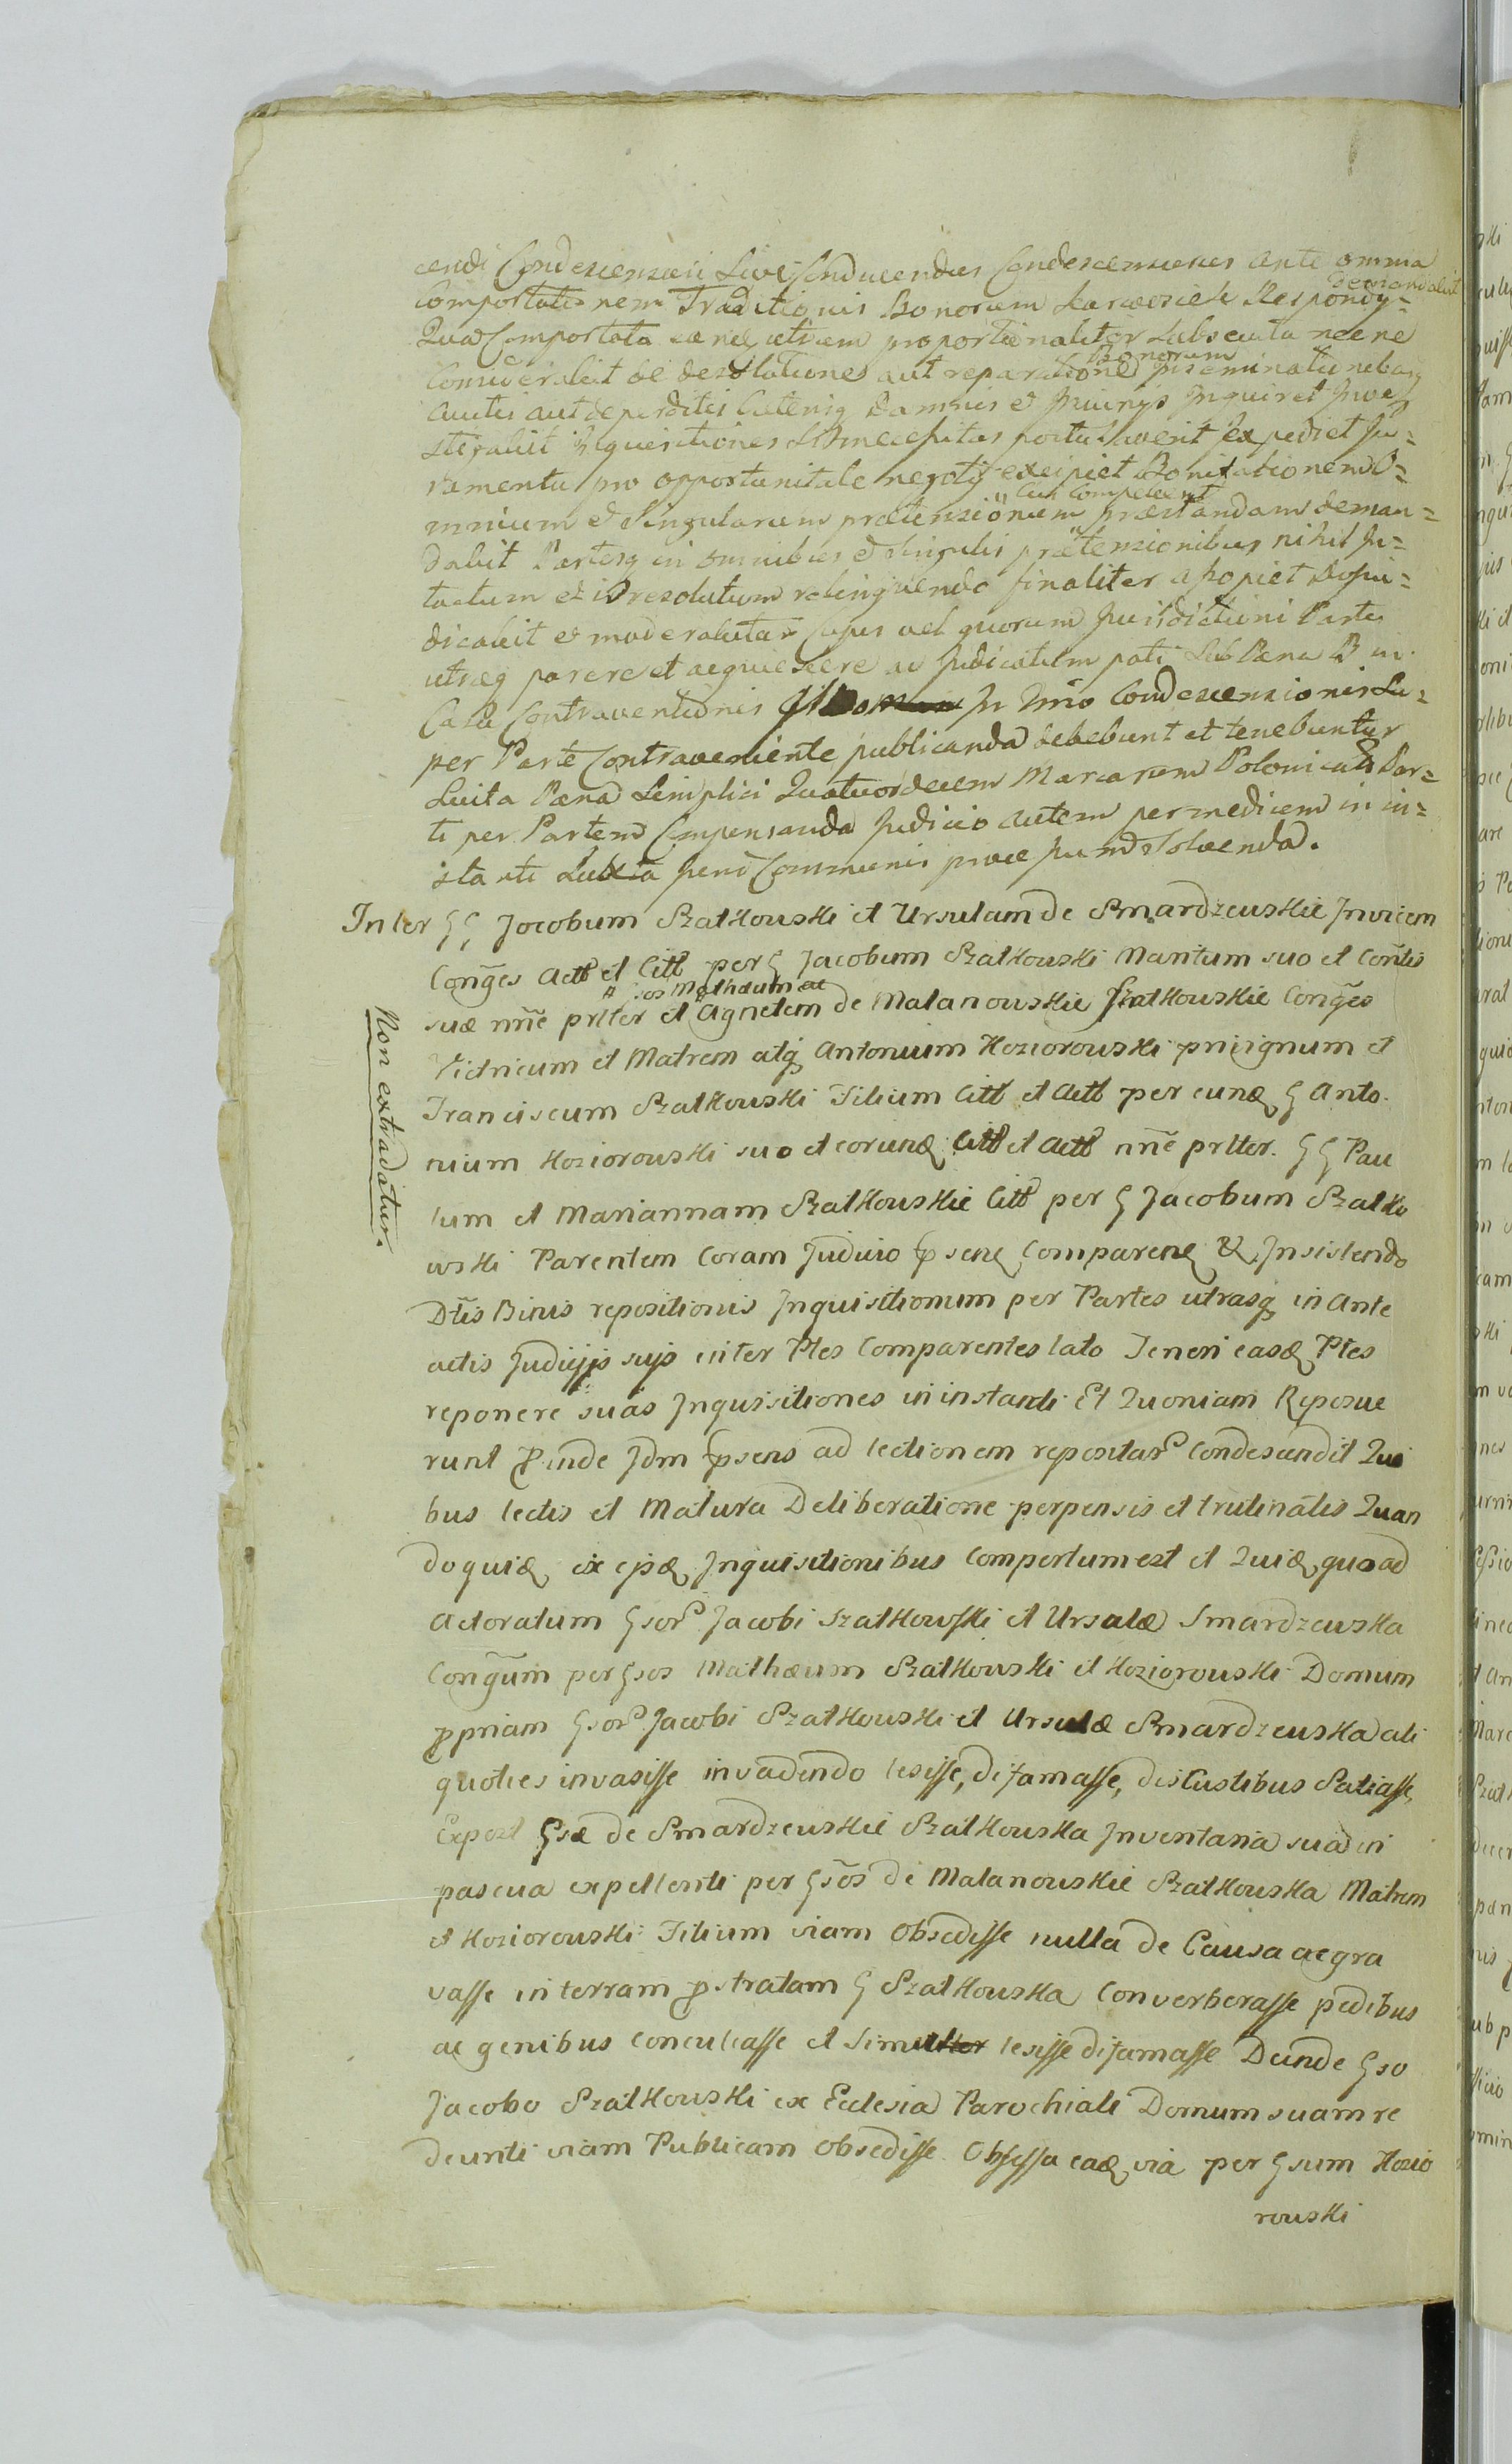 cendi Condescensorii Sive Conducendus Condescensores ante omnia
demandabit
Comportationem Traditionis Bonorum Respondy=
Qua Comportata eaq etiam proportionaliter Subsecuta necne
Bonorum
Considerabit de desolatione aut reparatione
auctis aut deperditis Catenq damnis et Injurys Inquiret Inve
stigabit Inquisitiones Si necessitas postulaverit Expediet Ju=
ramenta pro opportunitate negoty excipiet Bonificationem O=
cui Competent
mnium et Singularum praetensionum praestandam deman=
dabit Partesq in omnibus et Singulis praetensionibus nihil In=
tactum et irresolutum relinquendo finaliter Sopiet Diju=
dicabit et moderabitur Cujus vel quorum Jurisdictioni Partes
utraeq parere et acquiescere ac Judicatum pati Sub Paena B in
Casu Contraventionis In Tmio Condescensionis Su=
per Parte Contraveniente publicanda debebunt et tenebuntur
Luita Paena Simplici Quatuordecem Marcarum Polonicali Par=
ti per Partem Compensanda Judicio autem per medium in in=
stanti Luita peni Communis pace Solvenda.
Inter GG Jacobum Szatkowski et Ursulam de Smardzewskie Invicem
Conges Actt et Citt per G Jacobum Szatkowski Maritum suo et Contis
sos Mathaeum ac
suae nrie prlter et Agnetem de Malanowskie Szatkowskie Conges
Victricum et Matrem atq Antonium Koziorowski privignum et
Franciscum Szatkowski Filium Citt et Actt per eund G Anto.
nium Koziorowski suo et eorund Citt et Actt nne prlter. GG Pau
lum et Mariannam Szatkowskie Citt per G Jacobum Szatko
wski Parentem Coram Judicio psene Comparene & Insistendo
Dtis Binis repositionis Inquisitionum per Partes utrasq in Ante
actis Judicijs suis inter Ptes Comparentes lato Teneri easd Ptes
reponere suas Inquisitiones in instanti Et Quoniam Reposue
runt Proinde Jdm psens ad lectionem repositar Condescendit Qui
bus lectis et Matura Deliberatione perpensis et trutinatis Quan
doquid ex ipsd Inquisitionibus Comportum est et Quid, quoad
Actoratum Gsor Jacobi Szatkowski et Ursulae Smardzewska
Congum per Gsos Mathaeum Szatkowski et Koziorowski Domum
ppriam Gsor Jacobi Szatkowski et Ursulae Smardzewska ali
quoties invasisse invadendo lesisse, difamasse, disCustibus Satiasse,
Expost Gsae de Smardzewskie Szatkowska Inventaria sua in
pascua expellenti per Gsos de Malanowskie Szatkowska Matrem
et Koziorowski Filium viam Obsedisse nulla de Causa aegra
vasse in terram pstratam G Szatkowska Converberasse pedibus
ac genibus conculcasse et Simulter lesisse difamasse Deinde Gso
Jacobo Szatkowski ex Ecclesia Parochiali Domum suam re
deunti viam Publicam Obsedisse. Obsessa ead via per Gsum Kozio
rowski
Non extradatur.